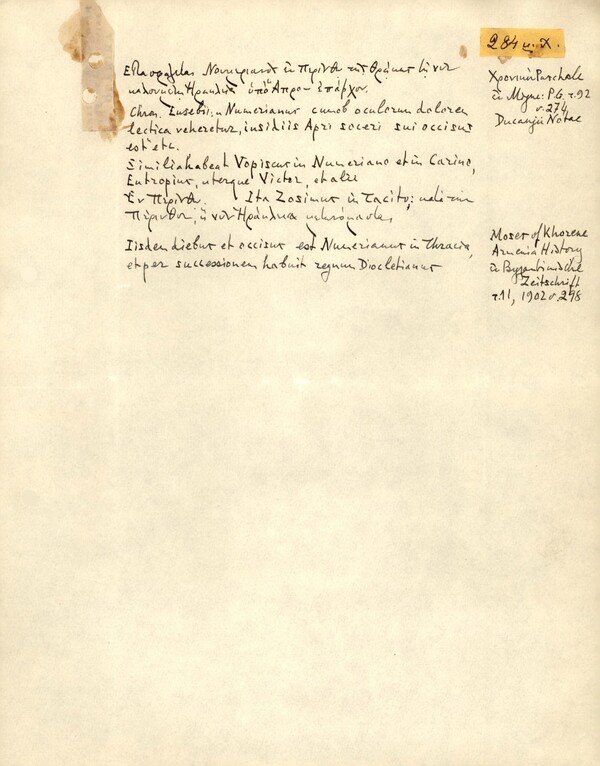 284 μ.Χ.
Εσφαγη Νουμεριανος ἐν Περίνθῳ τῆς Θράκης τῇ νυν
καλουμένῃ Ηρακλείᾳ ὑπὸ Απρου ἐπάρχου.
Chron. Eusebii: "Numerianus cum ob oculorum dolorem
lectica veheretur, insidiis Apri soceri sui occisus
est" etc.
Similia habent Vopiscus in Numeriano et in Carino,
Eutropius, uterque Victor, et alii
Ἐν Περίνθῳ. Ita Zosimus in Tacito:
Πέρινθον, ἣ νυν Ἡράκλεια
Iisdem diebus et occisus est Numerianus in Thracia,
et per successionem habuit regnum Diocletianus
Χρονικὸν Paschale
ἐν Migne: P.G. τ.92
σ.274
Ducangii Notae
Moses of Khorene
Armenia History
ἐν Byzantinische
Zeitschrift
τ.11, 1902 σ.298